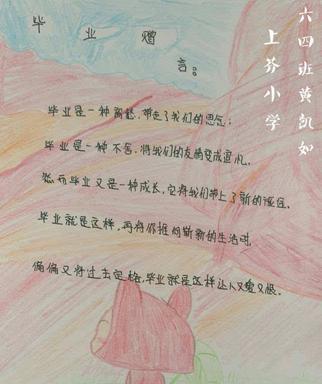 六四班黄凯如
上芬小学
毕业赠
言。
毕业是一种离愁,带走了我们的思念;
毕业是一种不舍,将我们的友情变成
然而毕业又是一种成长,它将我们带上了新的征程。
毕业就是这样,再将你推向崭新的生活时,
偏偏又将过去定格,毕业就是这样让人又爱又恨。